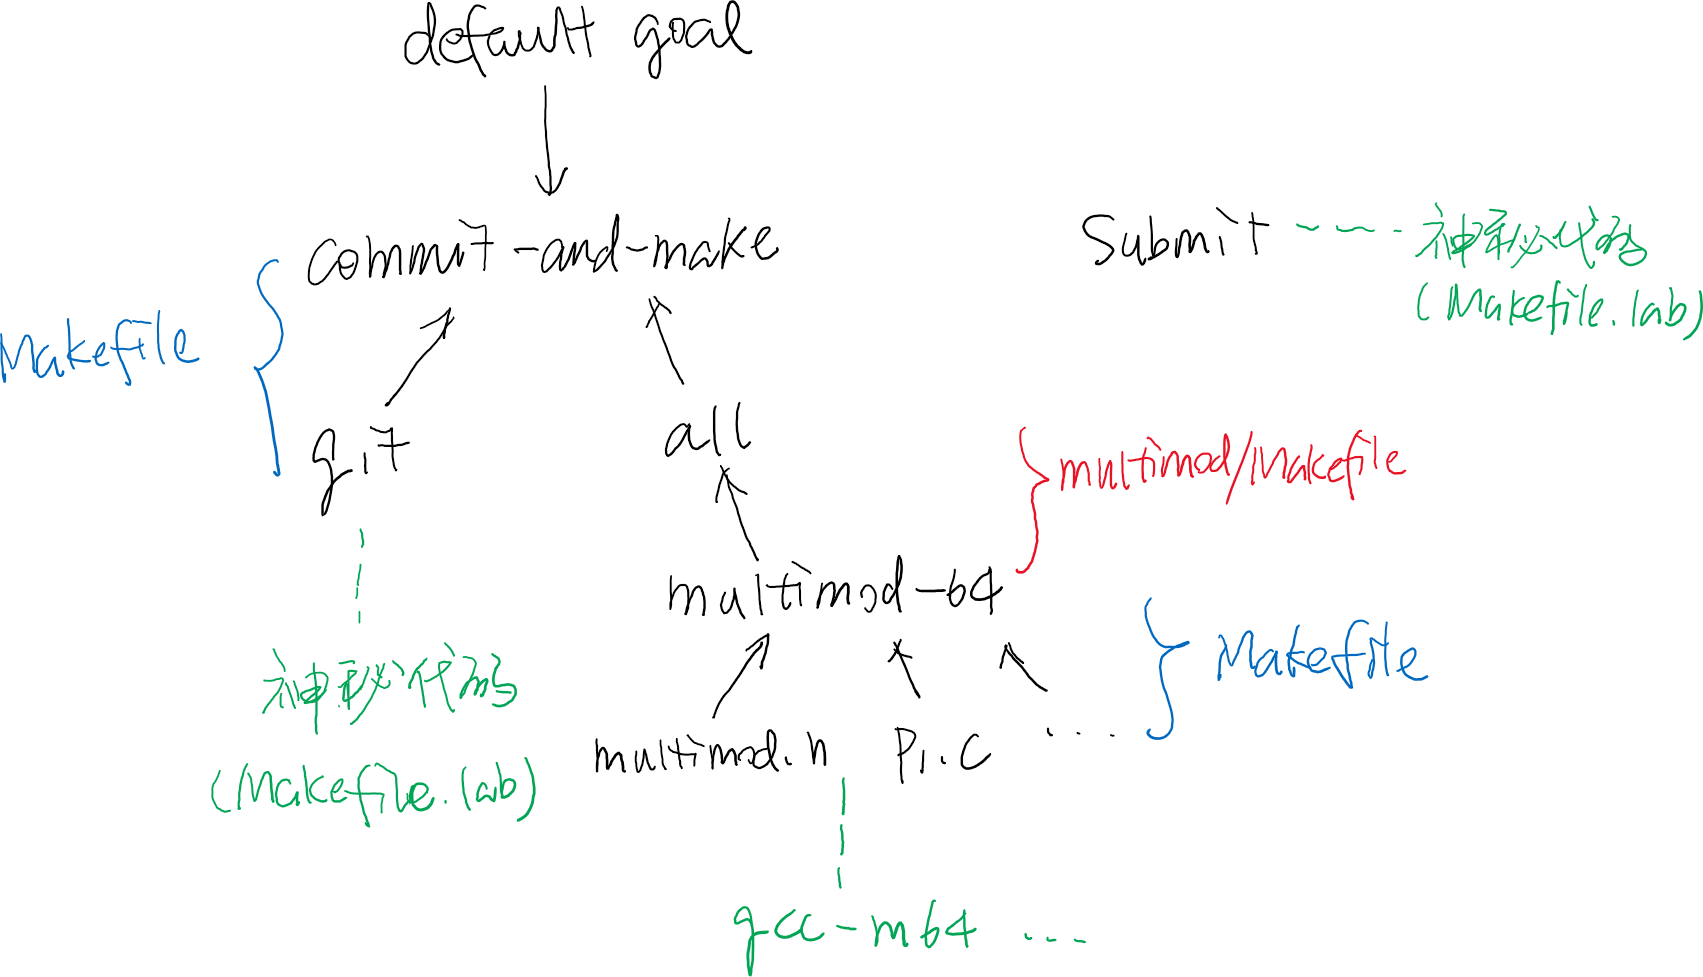 default goal
commit-and-make
Submit
神秘代码
(Makefile.lab)
Makefile
git
all
multimod/Makefile
multimod-64
Makefile
神秘代码
(Makefile.lab)
multimod.h
p1.c
....
gcc-m64 ...